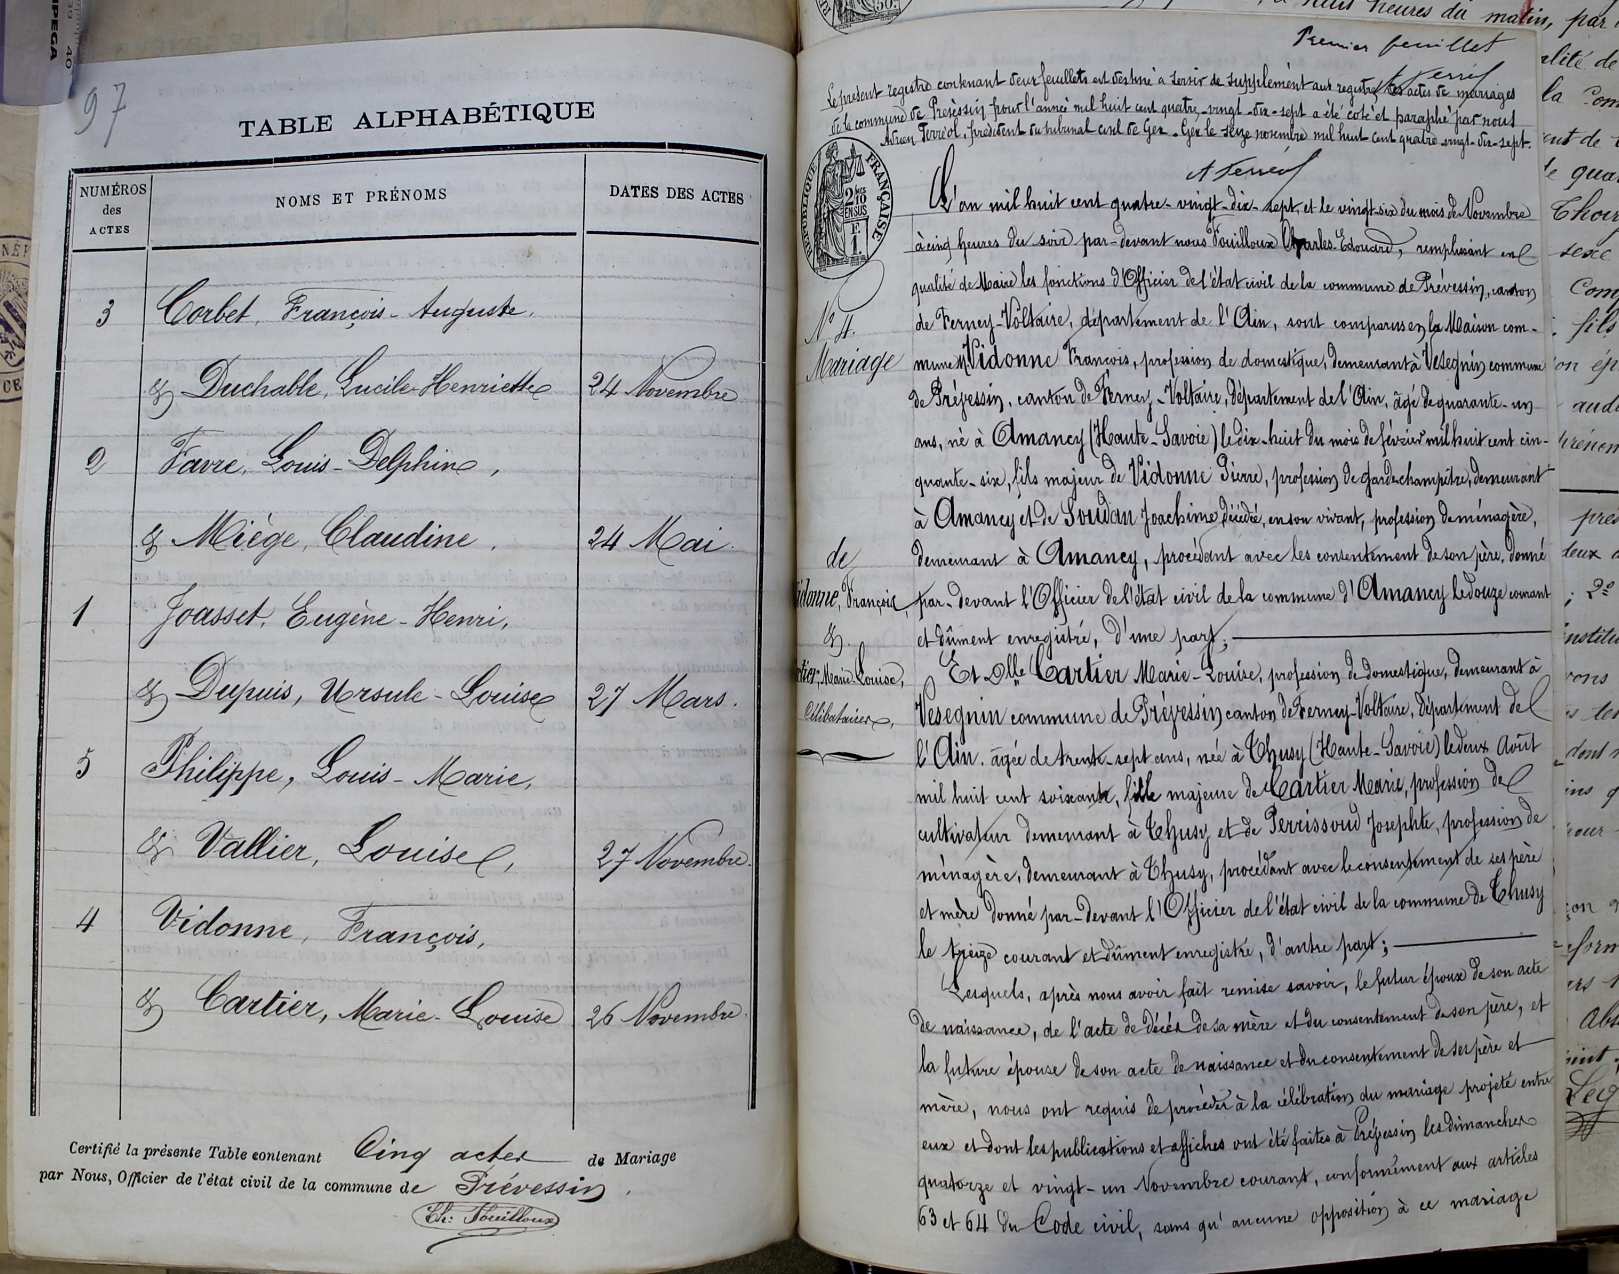 97
TABLE ALPHABÉTIQUE
NUMÉROS des ACTES
NOMS ET PRÉNOMS
DATES DES ACTES
3 Corbet, François-Auguste,
& Duchable, Lucile-Henriette 24 Novembre
2 Favre, Louis-Delphin,
& Miège, Claudine, 24 Mai.
1 Joasset, Eugène-Henri,
& Dupuis, Ursule-Louise 27 Mars.
5 Philippe, Louis-Marie,
& Vallier, Louise, 27 Novembre.
4 Vidonne, François,
& Cartier, Marie-Louise 26 Novembre.
Certifié la présente Table contenant Cinq actes de Mariage
par Nous, Officier de l'état civil de la commune de Prévessin.
Ch: Fouilloux
Premier feuillet
Le présent registre contenant deux feuillets est destiné à servir de supplément aux registres des actes de mariages
de la commune de Prévessin pour l'année mil huit cent quatre-vingt-dix-sept a été coté et paraphé par nous
Adrien Perréol, président du tribunal civil de Gex. Gex le seize novembre mil huit cent quatre-vingt-dix-sept.
RÉPUBLIQUE FRANÇAISE
2/10 EN SUS
1 F.
N° 4.
Mariage
de
Vidonne, François,
&
Cartier, Marie Louise,
Célibataires,
L'an mil huit cent quatre-vingt-dix-sept, et le vingt-six du mois de Novembre
à cinq heures du soir par-devant nous Fouilloux Charles-Edouard, remplissant en
qualité de Maire les fonctions d'Officier de l'état civil de la commune de Prévessin, canton
de Ferney-Voltaire, département de l'Ain, sont comparus en la Maison com-
mune, Vidonne François, profession de domestique, demeurant à Vesegnin commune
de Prévessin, canton de Ferney-Voltaire, département de l'Ain, âgé de quarante-un
ans, né à Amancy (Haute-Savoie) le dix-huit du mois de février mil huit cent cin-
quante-six, fils majeur de Vidonne Pierre, profession de garde-champêtre, demeurant
à Amancy et de Soudan Joachime, décédée, en son vivant, profession de ménagère,
demeurant à Amancy, procédant avec les consentement de son père, donné
par-devant l'Officier de l'état civil de la commune d'Amancy le douze courant
et dûment enregistré, d'une part;
Et Dlle Cartier Marie-Louise, profession de domestique, demeurant à
Vesegnin commune de Prévessin canton de Ferney-Voltaire, département de
l'Ain, âgée de trente-sept ans, née à Thusy (Haute-Savoie) le deux Août
mil huit cent soixante, fille majeure de Cartier Marie, profession de
cultivateur demeurant à Thusy et de Perrissoud Josephte, profession de
ménagère, demeurant à Thusy, procédant avec le consentement de ses père
et mère donné par-devant l'Officier de l'état civil de la commune de Thusy
le treize courant et dûment enregistré, d'autre part;
Lesquels, après nous avoir fait remise savoir, le futur époux de son acte
de naissance, de l'acte de décès de sa mère et du consentement de son père, et
la future épouse de son acte de naissance et du consentement de ses père et
mère, nous ont requis de procéder à la célébration du mariage projeté entre
eux et dont les publications et affiches ont été faites à Prévessin les dimanches
quatorze et vingt-un Novembre courant, conformément aux articles
63 et 64 du Code civil, sans qu'aucune opposition à ce mariage